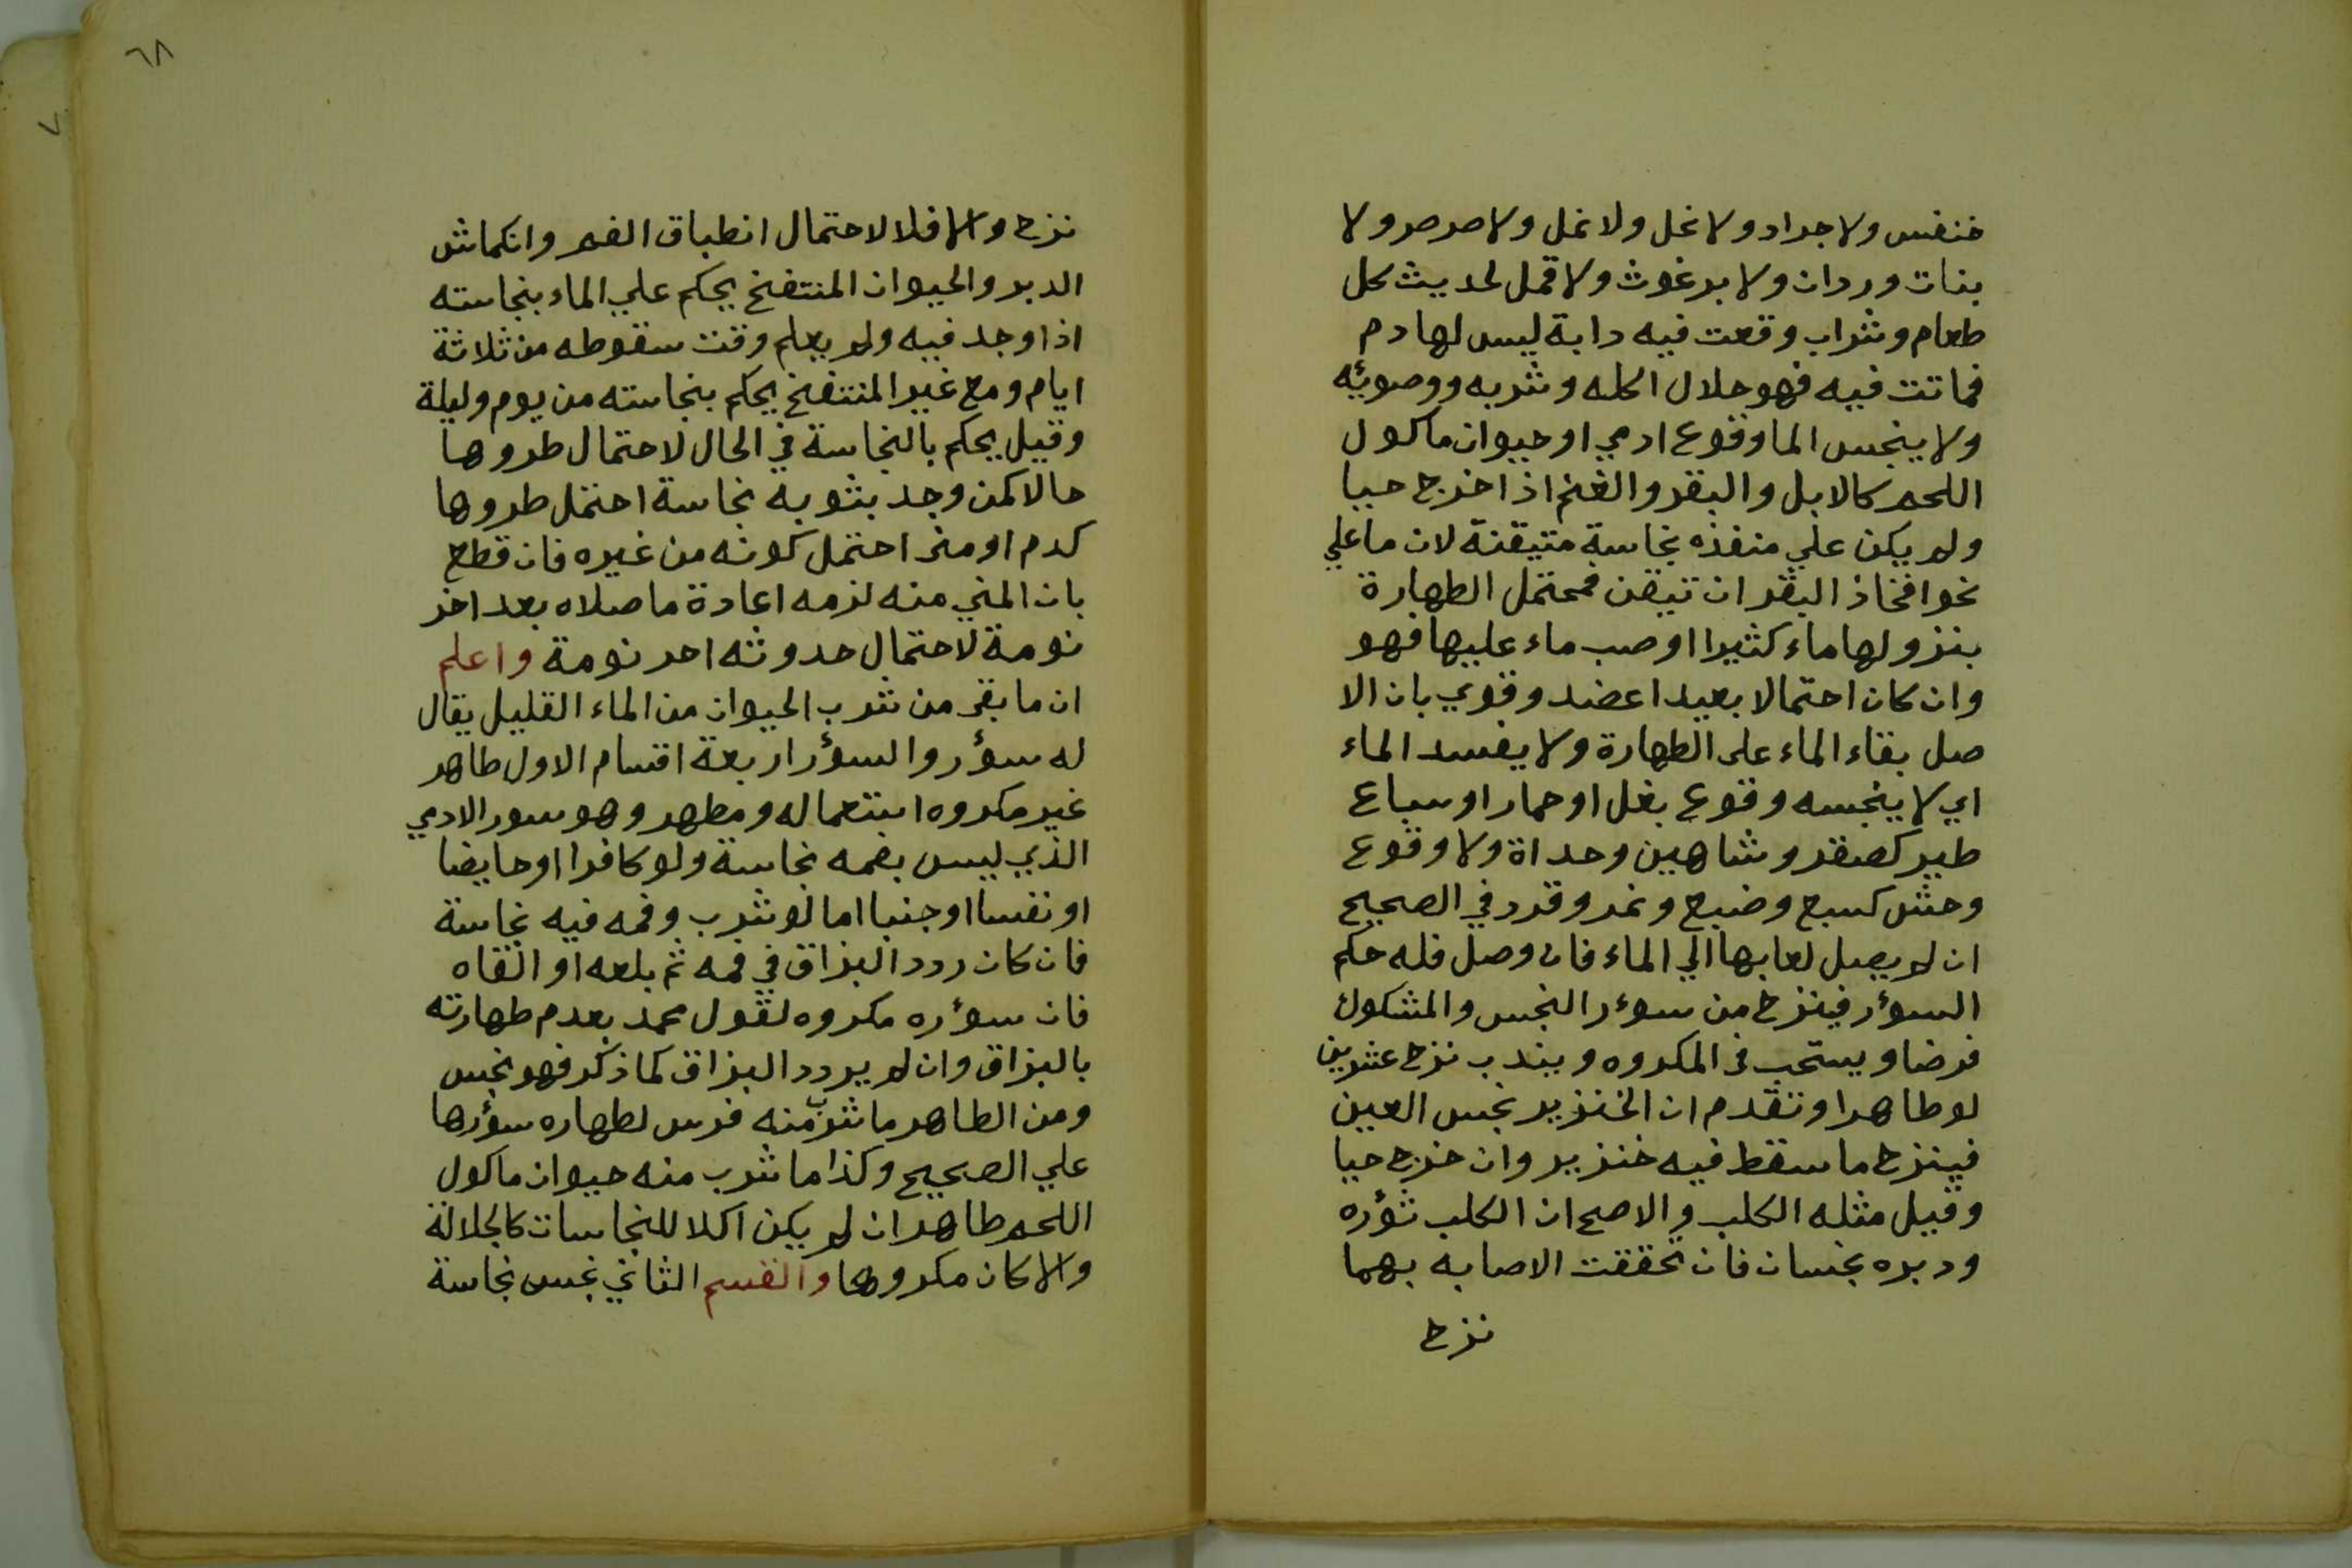 خنفس ولا جراد ولا نحل ولا نمل ولا صرصر ولا
بنات وردان ولا برغوث ولا قمل لحديث كل
طعام وشراب وقعت فيه دابة ليس لها دم
فماتت فيه فهو حلال اكله وشربه ووضوئه
ولا ينجس الما وقوع ادمي او حيوان ماكول
اللحم كالابل والبقر والغنم اذا خرج حيا
ولم يكن علي منفذه نجاسة متيقنة لان ما علي
نحو افخاذ البقر ان تيقن فمحتمل الطهارة
بنزولها ماء كثيرا او صب ماء عليها فهو
وان كان احتمالا بعيدا اعضد وقوي بان الا
صل بقاء الماء على الطهارة ولا يفسد الماء
اي لا ينجسه وقوع بغل او حمار او سباع
طير كصقر وشاهين وحداة ولا وقوع
وحش كسبع وضبع ونمر وقرد في الصحيح
ان لم يصل لعابها الي الماء فان وصل فله حكم
السؤر فينزح من سوءر النجس والمشكوك
فرضا ويستحب في المكروه ويندب نزح عشرين
لو طاهرا وتقدم ان الخنزير نجس العين
فينزح ما سقط فيه خنزير وان خرج حيا
وقيل مثله الكلب والاصح ان الكلب ثؤره
ودبره نجسان فان تحققت الاصابه بهما
نزح
٦٨
نزح والا فلا لاحتمال انطباق الفم وانكماش
الدبر والحيوان المنتفخ يحكم علي الماء بنجاسته
اذا وجد فيه ولم يعلم وقت سقوطه من ثلاثة
ايام ومع غير المنتفخ يحكم بنجاسته من يوم وليلة
وقيل يحكم بالنجاسة في الحال لاحتمال طروها
حالا كمن وجد بثوبه نجاسة احتمل طروها
كدم او مني احتمل كونه من غيره فان قطع
بان المني منه لزمه اعادة ما صلاه بعد اخر
نومة لاحتمال حدوثه اخر نومة واعلم
ان ما بقي من شرب الحيوان من الماء القليل يقال
له سؤر والسؤر اربعة اقسام الاول طاهر
غير مكروه استعماله ومطهر وهو سور الادمي
الذي ليس بفمه نجاسة ولو كافرا او حايضا
او نفسا او جنبا اما لو شرب وفمه فيه نجاسة
فان كان ردد البزاق في فمه ثم بلعه او القاه
فان سوءره مكروه لقول محمد بعدم طهارته
بالبزاق وان لم يردد البزاق كما ذكر فهو نجس
ومن الطاهر ما شرب منه فرس لطهاره سؤرها
علي الصحيح وكذا ما شرب منه حيوان ماكول
اللحم طاهر ان لم يكن اكلا للنجاسات كالجلالة
والا كان مكروها والقسم الثاني نجس نجاسة
٧